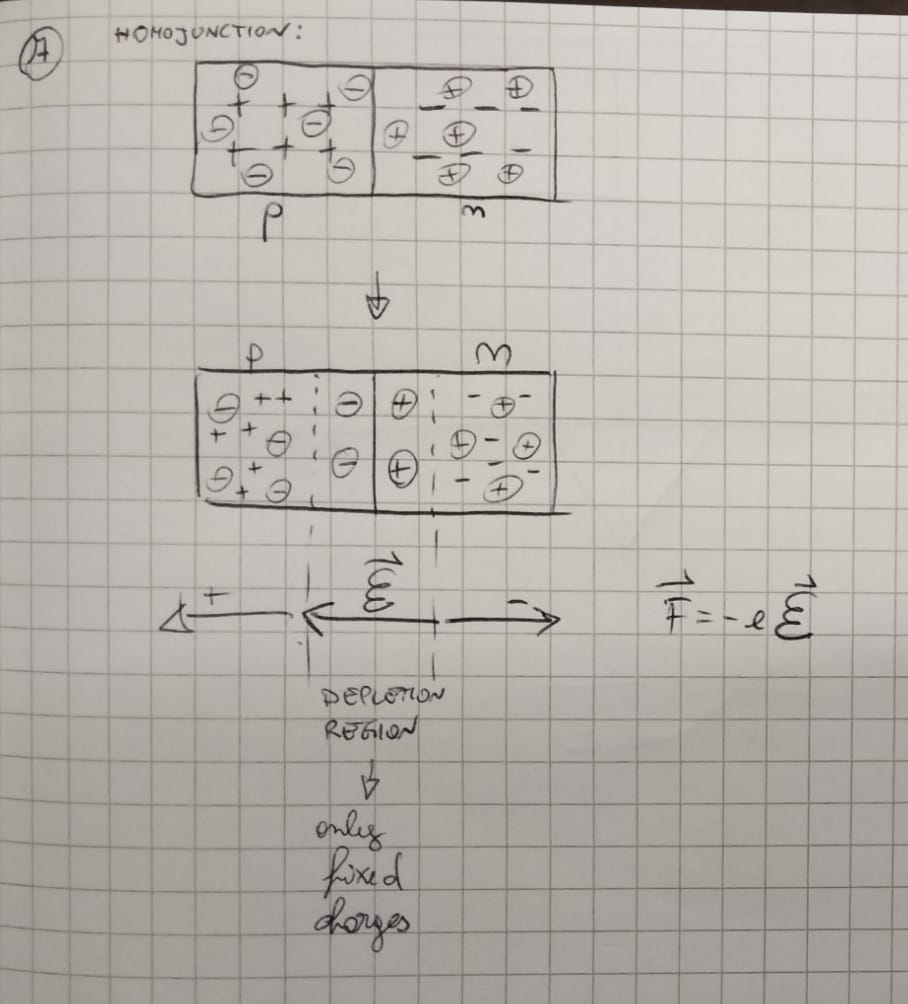 17
HOMOJUNCTION:
⊖ ⊖
+ + +
⊖ ⊖
+ + +
⊖ ⊖
⊕ ⊕
− − −
⊕ ⊕
− − −
⊕ ⊕
p n
↓
p n
⊖ ++ ⊖ ⊕ - ⊕ -
+ + ⊖ ⊕ - ⊕
⊖ + ⊖ ⊕ -
+ ⊖ - ⊕ -
+ ℰ⃗ -
F⃗ = -e ℰ⃗
DEPLETION
REGION
↓
only
fixed
charges